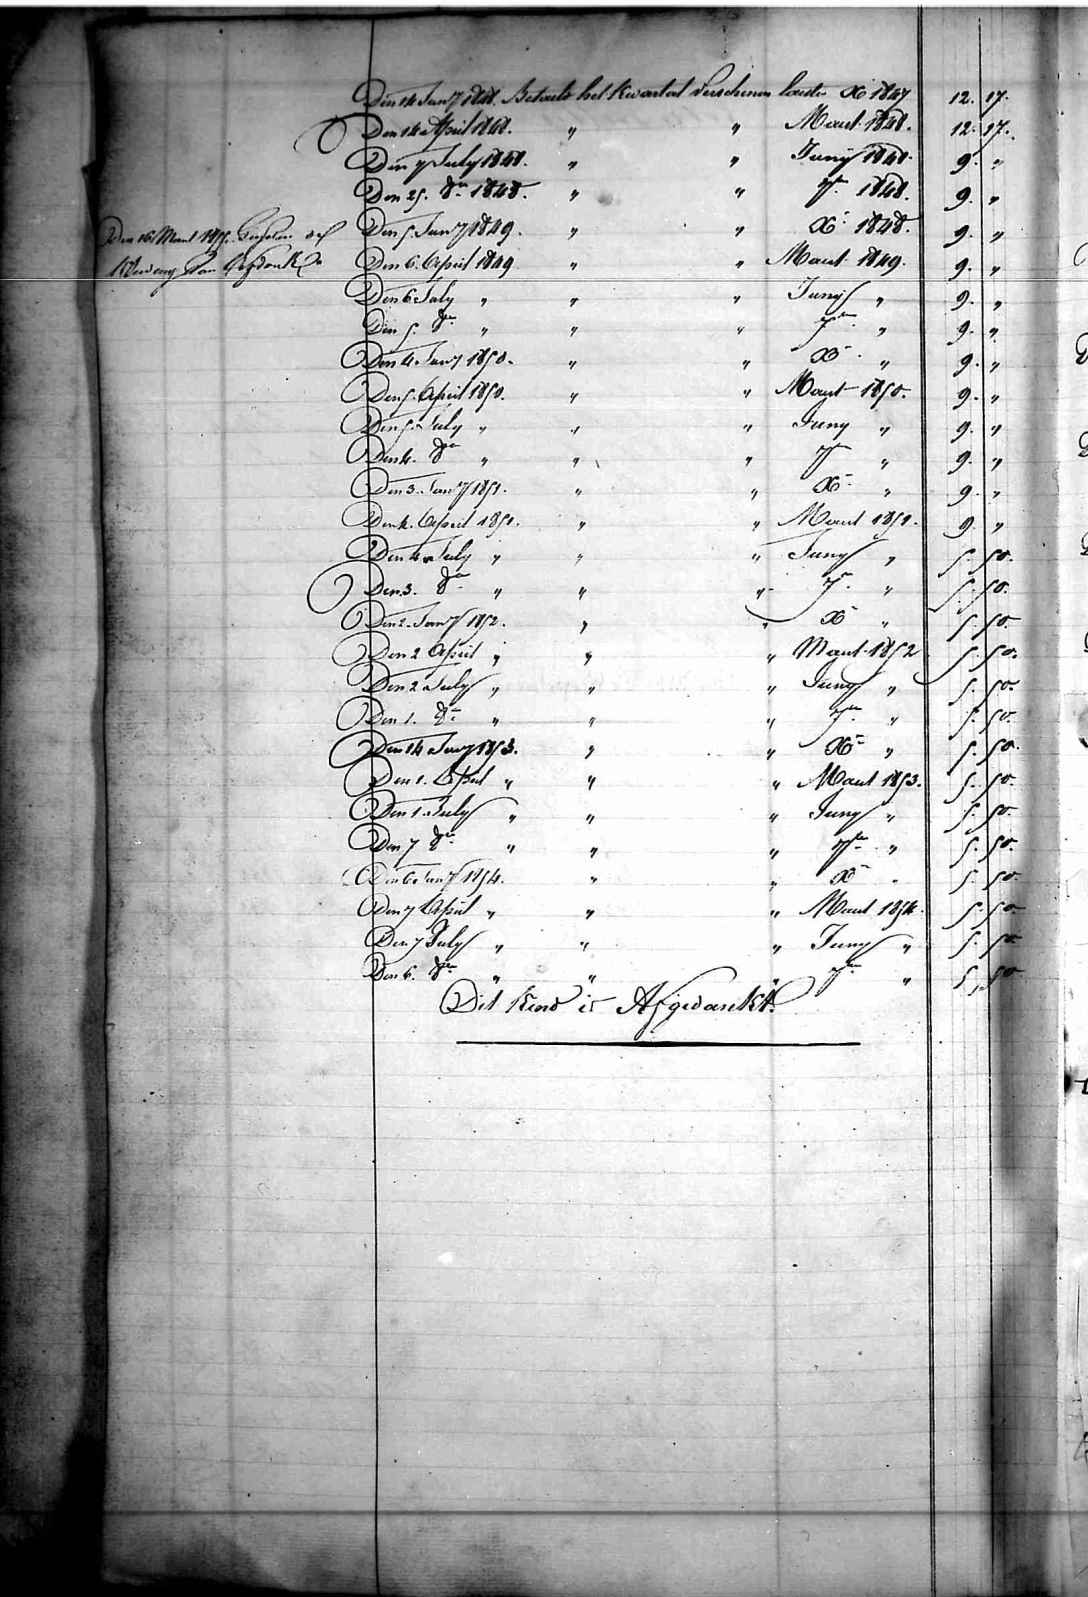 Den 14 Jany 1848. Betaeld het kwartael verschenen laeste Xb 1847 12. 17.
Den 14 April 1848. " " Maart 1848. 12. 17.
Den 7 July 1848. " " Juny 1848. 9. "
Den 25. 8re 1848. " " 7re 1848. 9. "
Den 5 Jany 1849. " " Xb 1848. 9. "
Den 16 Maart
Den 6. April 1849 " " Maart 1849. 9. "
Kleeding van
Den 6 July " " " Juny " 9. "
Den 5. 8re " " " 7re " 9. "
Den 4 Jany 1850. " " Xb " 9. "
Den 5. April 1850. " " Maart 1850. 9. "
Den 5. July " " " Juny " 9. "
Den 4. 8re " " " 7re " 9. "
Den 3. Jany 1851. " " Xb " 9. "
Den 4. April 1851. " " Maart 1851. 9. "
Den 4 July " " " Juny " 5. 50.
Den 3. 8re " " " 7re " 5. 50.
Den 2. Jany 1852. " " Xb " 5. 50.
Den 2 April " " " Maart 1852 5. 50.
Den 2 July " " " Juny " 5. 50.
Den 1. 8re " " " 7re " 5. 50.
Den 14 Jany 1853. " " Xb " 5. 50.
Den 1. April " " " Maart 1853. 5. 50.
Den 1. July " " " Juny " 5. 50.
Den 7 8re " " " 7re " 5. 50.
Den 6 Jany 1854. " " Xb " 5. 50.
Den 7 April " " " Maart 1854. 5. 50.
Den 7 July " " " Juny " 5. 50.
Den 6. 8re " " " 7re " 5. 50
Dit kind is Afgedankt.